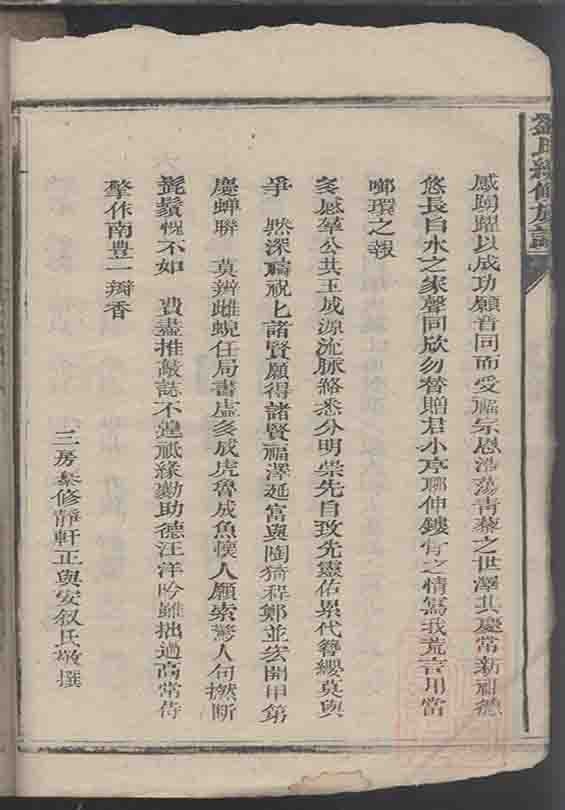 劉氏續修族譜
感踴躍以成功願音同而受福宗恩浩蕩青藜之世澤共慶常新祖德
悠長白水之家聲同欣勿替贈君小序聊伸鏤骨之情寫我荒言用當
啣環之報
多感華公共玉成源流脉絡悉分明崇先自致先靈佑累代簪纓莫與
爭 㷊深禱祝匕諸賢願得諸賢福澤延富與陶猗程鄭並宏開甲第
慶蟬聯 莫辨雌蜺任局書虛多成虎魯成魚懷人願索驚人句撚断
髭鬚愧不如 費盡推敲誌不遑祇緣勷助德汪洋吟雖拙過高常侍
擎作南豊一瓣香
三房纂修靜軒正與安叙氏敬撰